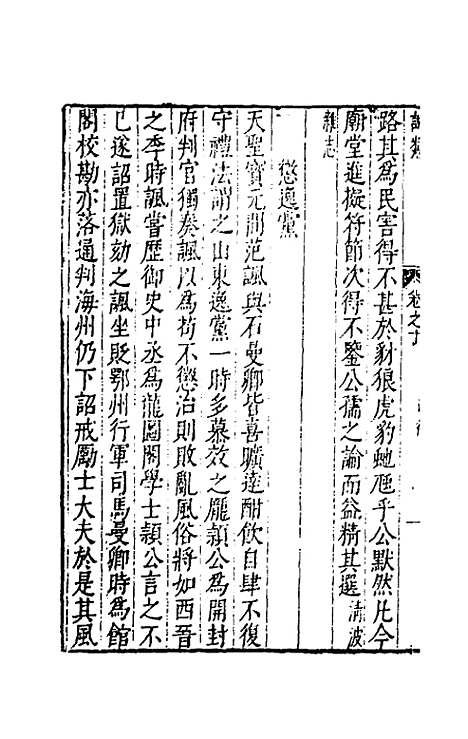 路其為民害得不甚於豺狼虎豹虵虺乎公默然凡今
廟堂進擬符節次得不鑒公孺之論而益精其選清波
雜志
懲逸黨
天聖寶元間范諷與石曼卿皆喜曠達酣飲自肆不復
守禮法謂之山東逸黨一時多慕效之龎頴公為開封
府判官獨奏諷以為苟不懲治則敗亂風俗將如西晉
之季時諷嘗歷御史中丞為龍圖閣學士頴公言之不
已遂詔置獄劾之諷坐貶鄂州行軍司馬曼卿時為館
閣校勘亦落通判海州仍下詔戒勵士大夫於是其風
卷之十